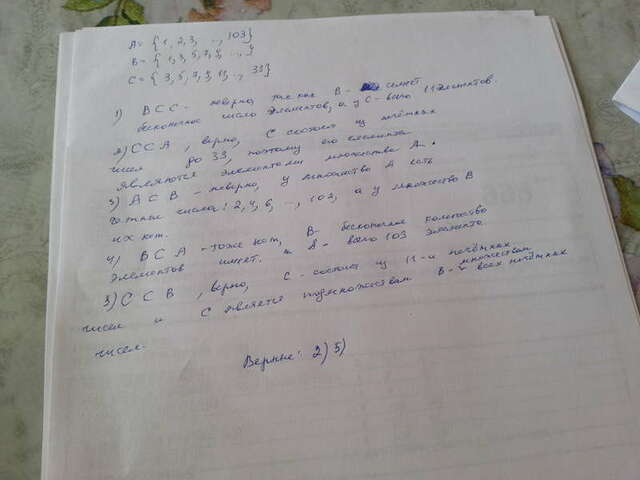 A = {1, 2, 3, ..., 103}
B = {1, 3, 5, 7, 9, ...}
C = {3, 5, 7, 9, 11, ..., 33}
1) B ⊂ C - неверно, так как B - имеет
бесконечное число элементов, а у C - всего 11 элементов.
2) C ⊂ A, верно, C состоит из нечётных
чисел до 33, поэтому его элементы
являются элементами множества A.
3) A ⊂ B - неверно, у множества A есть
чётные числа: 2, 4, 6, ..., 102, а у множества B
их нет.
4) B ⊂ A - тоже нет, B - бесконечное количество
элементов имеет, а A - всего 103 элемента
5) C ⊂ B, верно, C - состоит из 11-и нечётных
чисел и C является подмножеством B - множеством всех нечётных
чисел.
Верные: 2) 5)